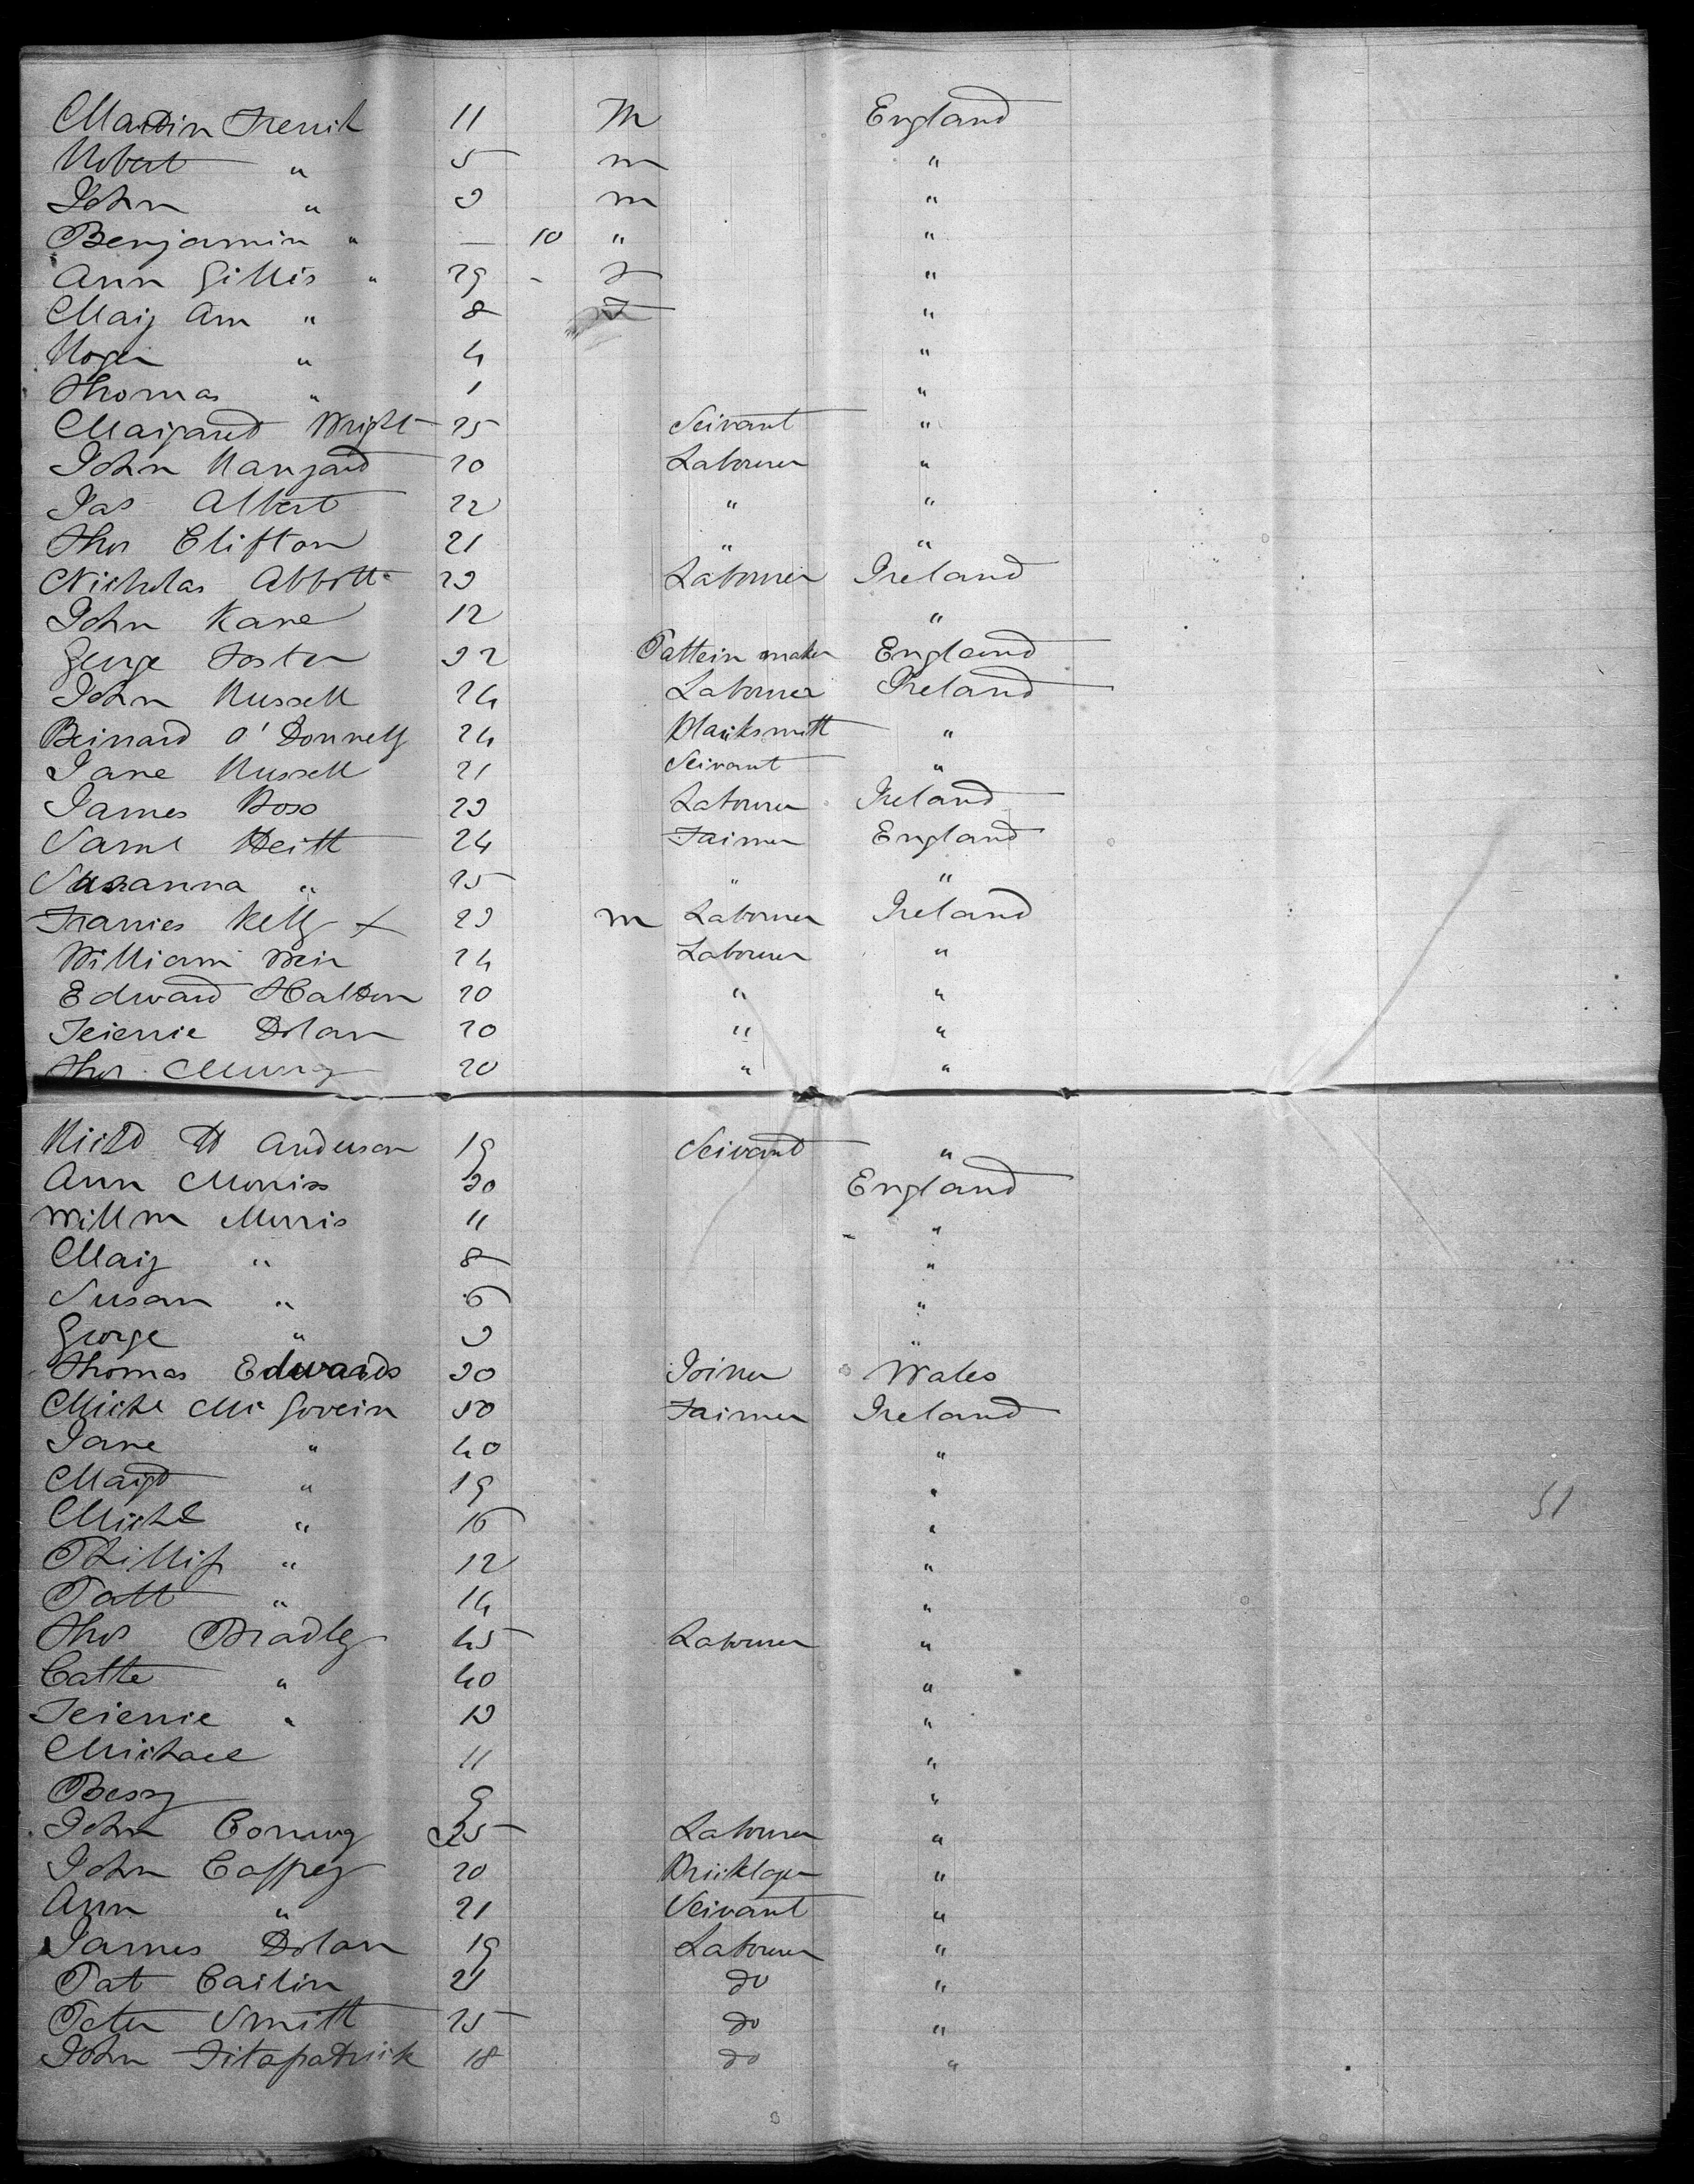 Martin Trenik 11 M England
Robert " 5 m "
John " 3 m "
Benjamin " — 10 " "
Ann Gillis " 29 - F "
Mary Ann " 8 F "
Roger " 4 "
Thomas " 1 "
Margaret Wright 25 Servant "
John 20 Labourer "
Jas Albert 22 " "
Thos Clifton 21 " "
Nicholas Abbott 23 Labourer Ireland
John Kane 12 "
George Foster 32 Pattern maker England
John Russell 24 Labourer Ireland
Bernard O'Donnelly 24 Blacksmith "
Jane Russell 21 Servant "
James Ross 23 Labourer Ireland
Saml Keith 24 Farmer England
Susanna " 25 " "
Francies Kelly x 23 m Labourer Ireland
William Weir 24 Labourer "
Edward Halton 20 " "
Terence Dolan 20 " "
Thos 20 " "
Richd H Anderson 19 Servant "
Ann Morriss 30 England
Willm Morris 11 "
Mary " 8 "
Susan " 6 "
George " 3 "
Thomas Edwards 30 Joiner Wales
Michl McGovern 50 Farmer Ireland
Jane " 40 "
Margt " 19 "
Michl " 16 " 51
Phillip " 12 "
Patt " 14 "
Thos Bradly 45 Labourer "
Cathe " 40 "
Terence " 13 "
Michael 11 "
Bessy 9 "
John Conway 35 Labourer "
John Caffrey 20 Bricklayer "
Ann " 21 Servant "
James Dolan 19 Labourer "
Pat Carlin 21 do "
Peter Smith 25 do "
John Fitzpatrick 18 do "